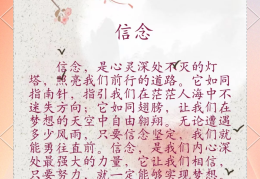 信念
信念，是心灵深处不灭的灯
塔，照亮我们前行的道路。它如同
指南针，指引我们在茫茫人海中不
迷失方向；它如同翅膀，让我们在
梦想的天空中自由翱翔。无论遭遇
多少风雨，只要信念坚定，我们就
能勇往直前。信念，是我们内心深
处最强大的力量，它让我们相信，
只要努力，就一定能够实现梦想，